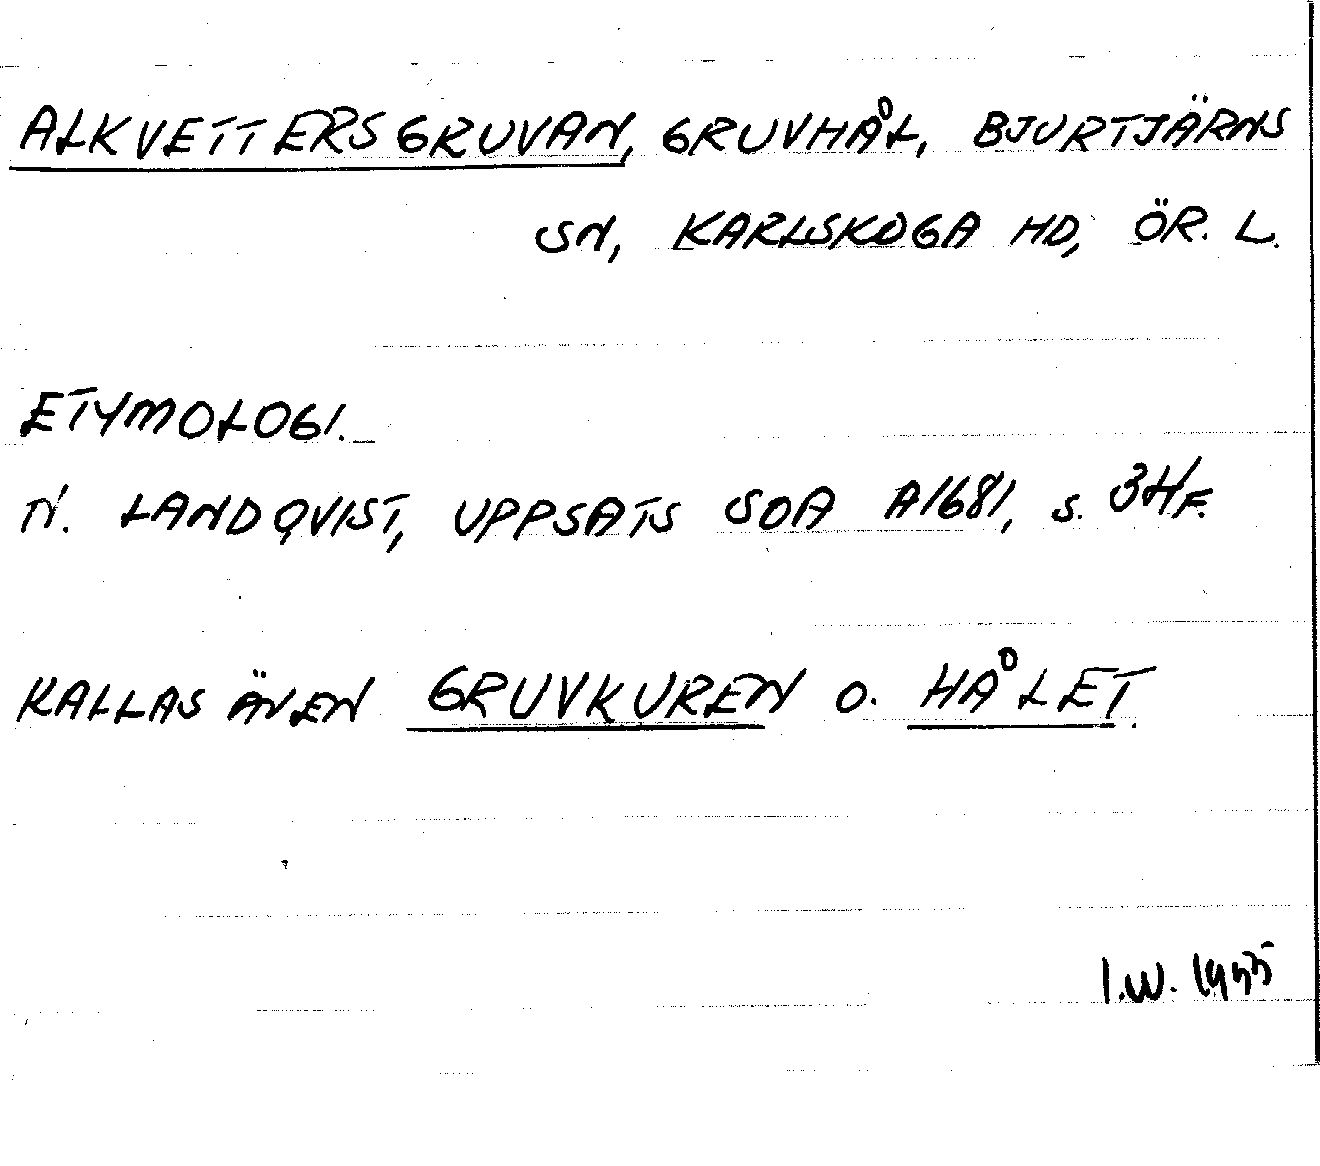 ALKVETTERSGRUVAN, GRUVHÅL, BJURTJÄRNS
SN, KARLSKOGA HD, ÖR. L.
ETYMOLOGI.
N. LANDQVIST, UPPSATS SOA A1681, S. 34F.
KALLAS ÄVEN GRUVKUREN O. HÅLET.
I.W. 1955